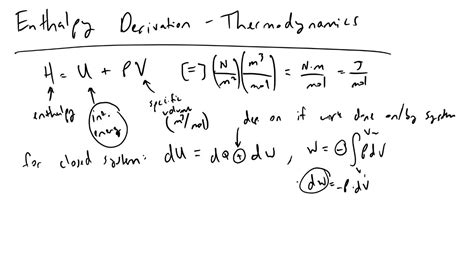 Enthalpy Derivation - Thermodynamics
H = U + PV [=] (N/m²)(m³/mol) = N·m/mol = J/mol
enthalpy int. energy specific volume (m³/mol)
dep on if work done on/by system
for closed system: dU = dQ + dW , W = -∫PdV
dW = -P·dV